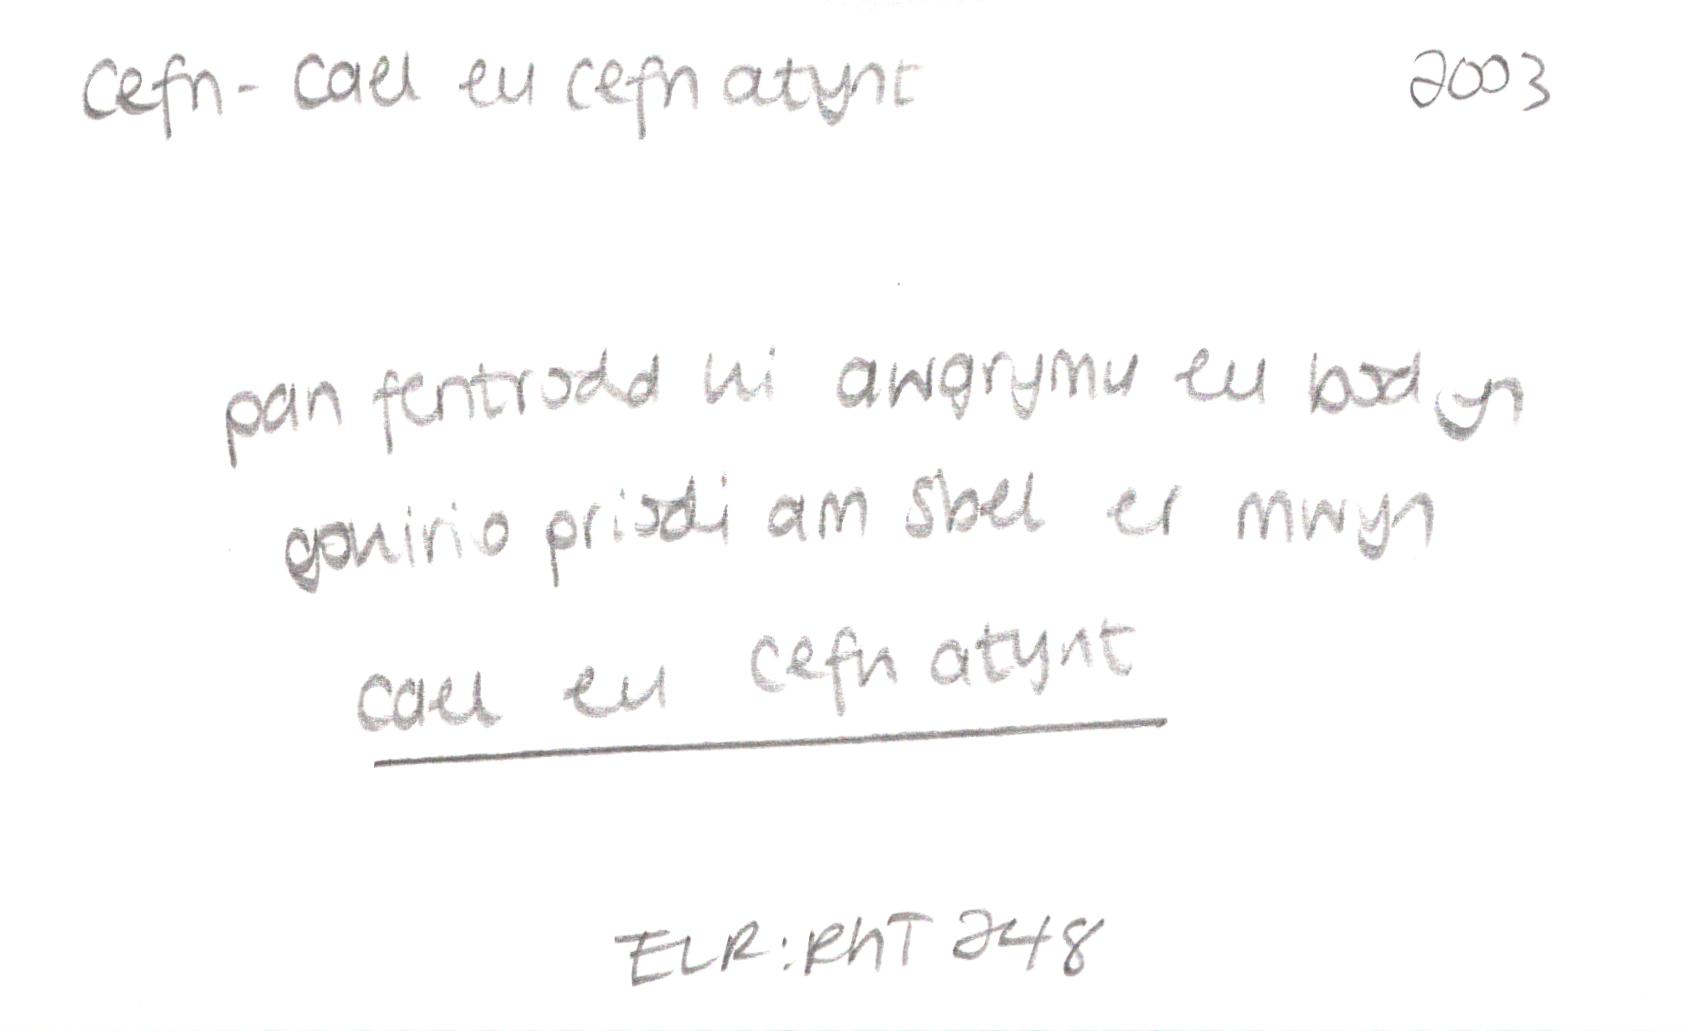 Cefn - cael eu cefn atynt 2003
pan fentrodd hi awgrymu eu bod yn
gohirio priodi am sbel er mwyn
cael eu cefn atynt
ELR: RhT 248